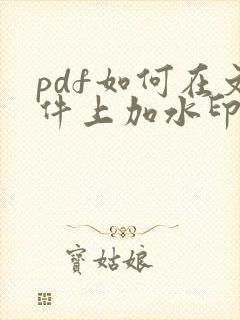 pdf如何在文
件上加水印
宝姑娘